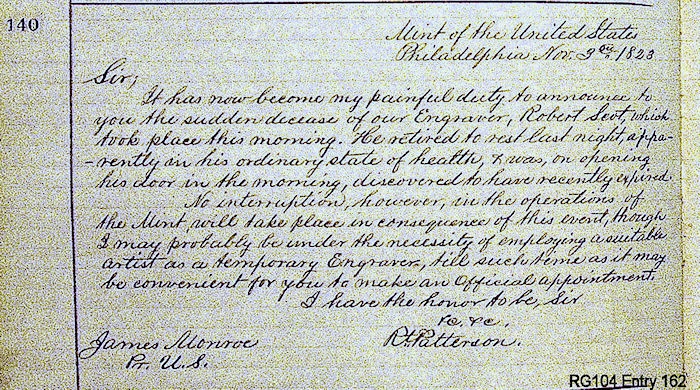 140
Mint of the United States
Philadelphia Nov. 3rd 1823
Sir;
It has now become my painful duty to announce to
you the sudden decease of our Engraver, Robert Scot, which
took place this morning. He retired to rest last night, appa-
-rently in his ordinary state of health, & was, on opening
his door in the morning, discovered to have recently expired.
No interruption, however, in the operations of
the Mint, will take place in consequence of this event, though
I may probably be under the necessity of employing a suitable
artist as a temporary Engraver, till such time as it may
be convenient for you to make an Official appointment.
I have the honor to be, Sir
&c. &c.
James Monroe
Rt. Patterson.
Pr. U.S.
RG104 Entry 162